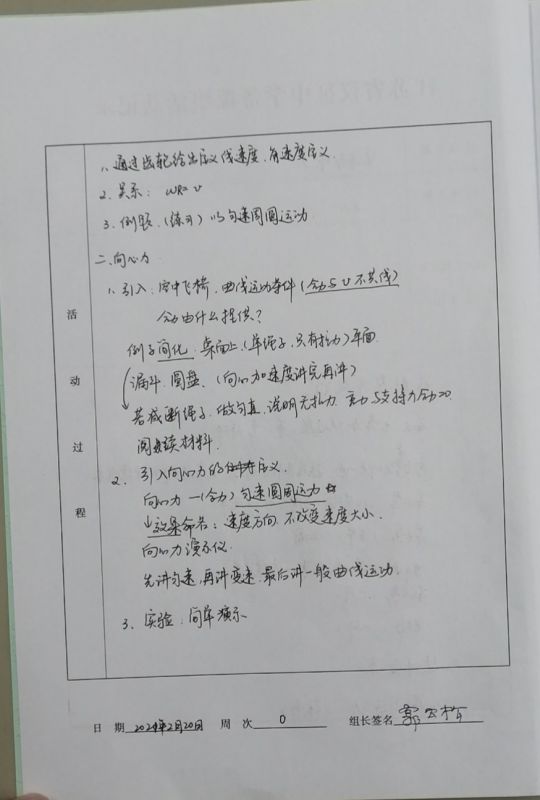 1、通过齿轮给出定义线速度、角速度定义
2、关系：ωR=v
3、例题、(练习) 以匀速圆周运动
二、向心力
1、引入：空中飞椅、曲线运动条件(合力与v不共线)
合力由什么提供？
例子简化：桌面上、(单绳子、只有拉力)平面
漏斗、圆盘、(向心加速度讲完再讲)
若减断绳子、做匀直、说明无拉力、重力与支持力合力=0.
阅读材料.
2、引入向心力的定义.
向心力—(合力) 匀速圆周运力
↓效果命名：速度方向、不改变速度大小.
向心力演示仪.
先讲匀速、再讲变速、最后讲一般曲线运动.
3、实验、简单演示
活动过程
日 期 2024年2月20日 周 次 0 组长签名